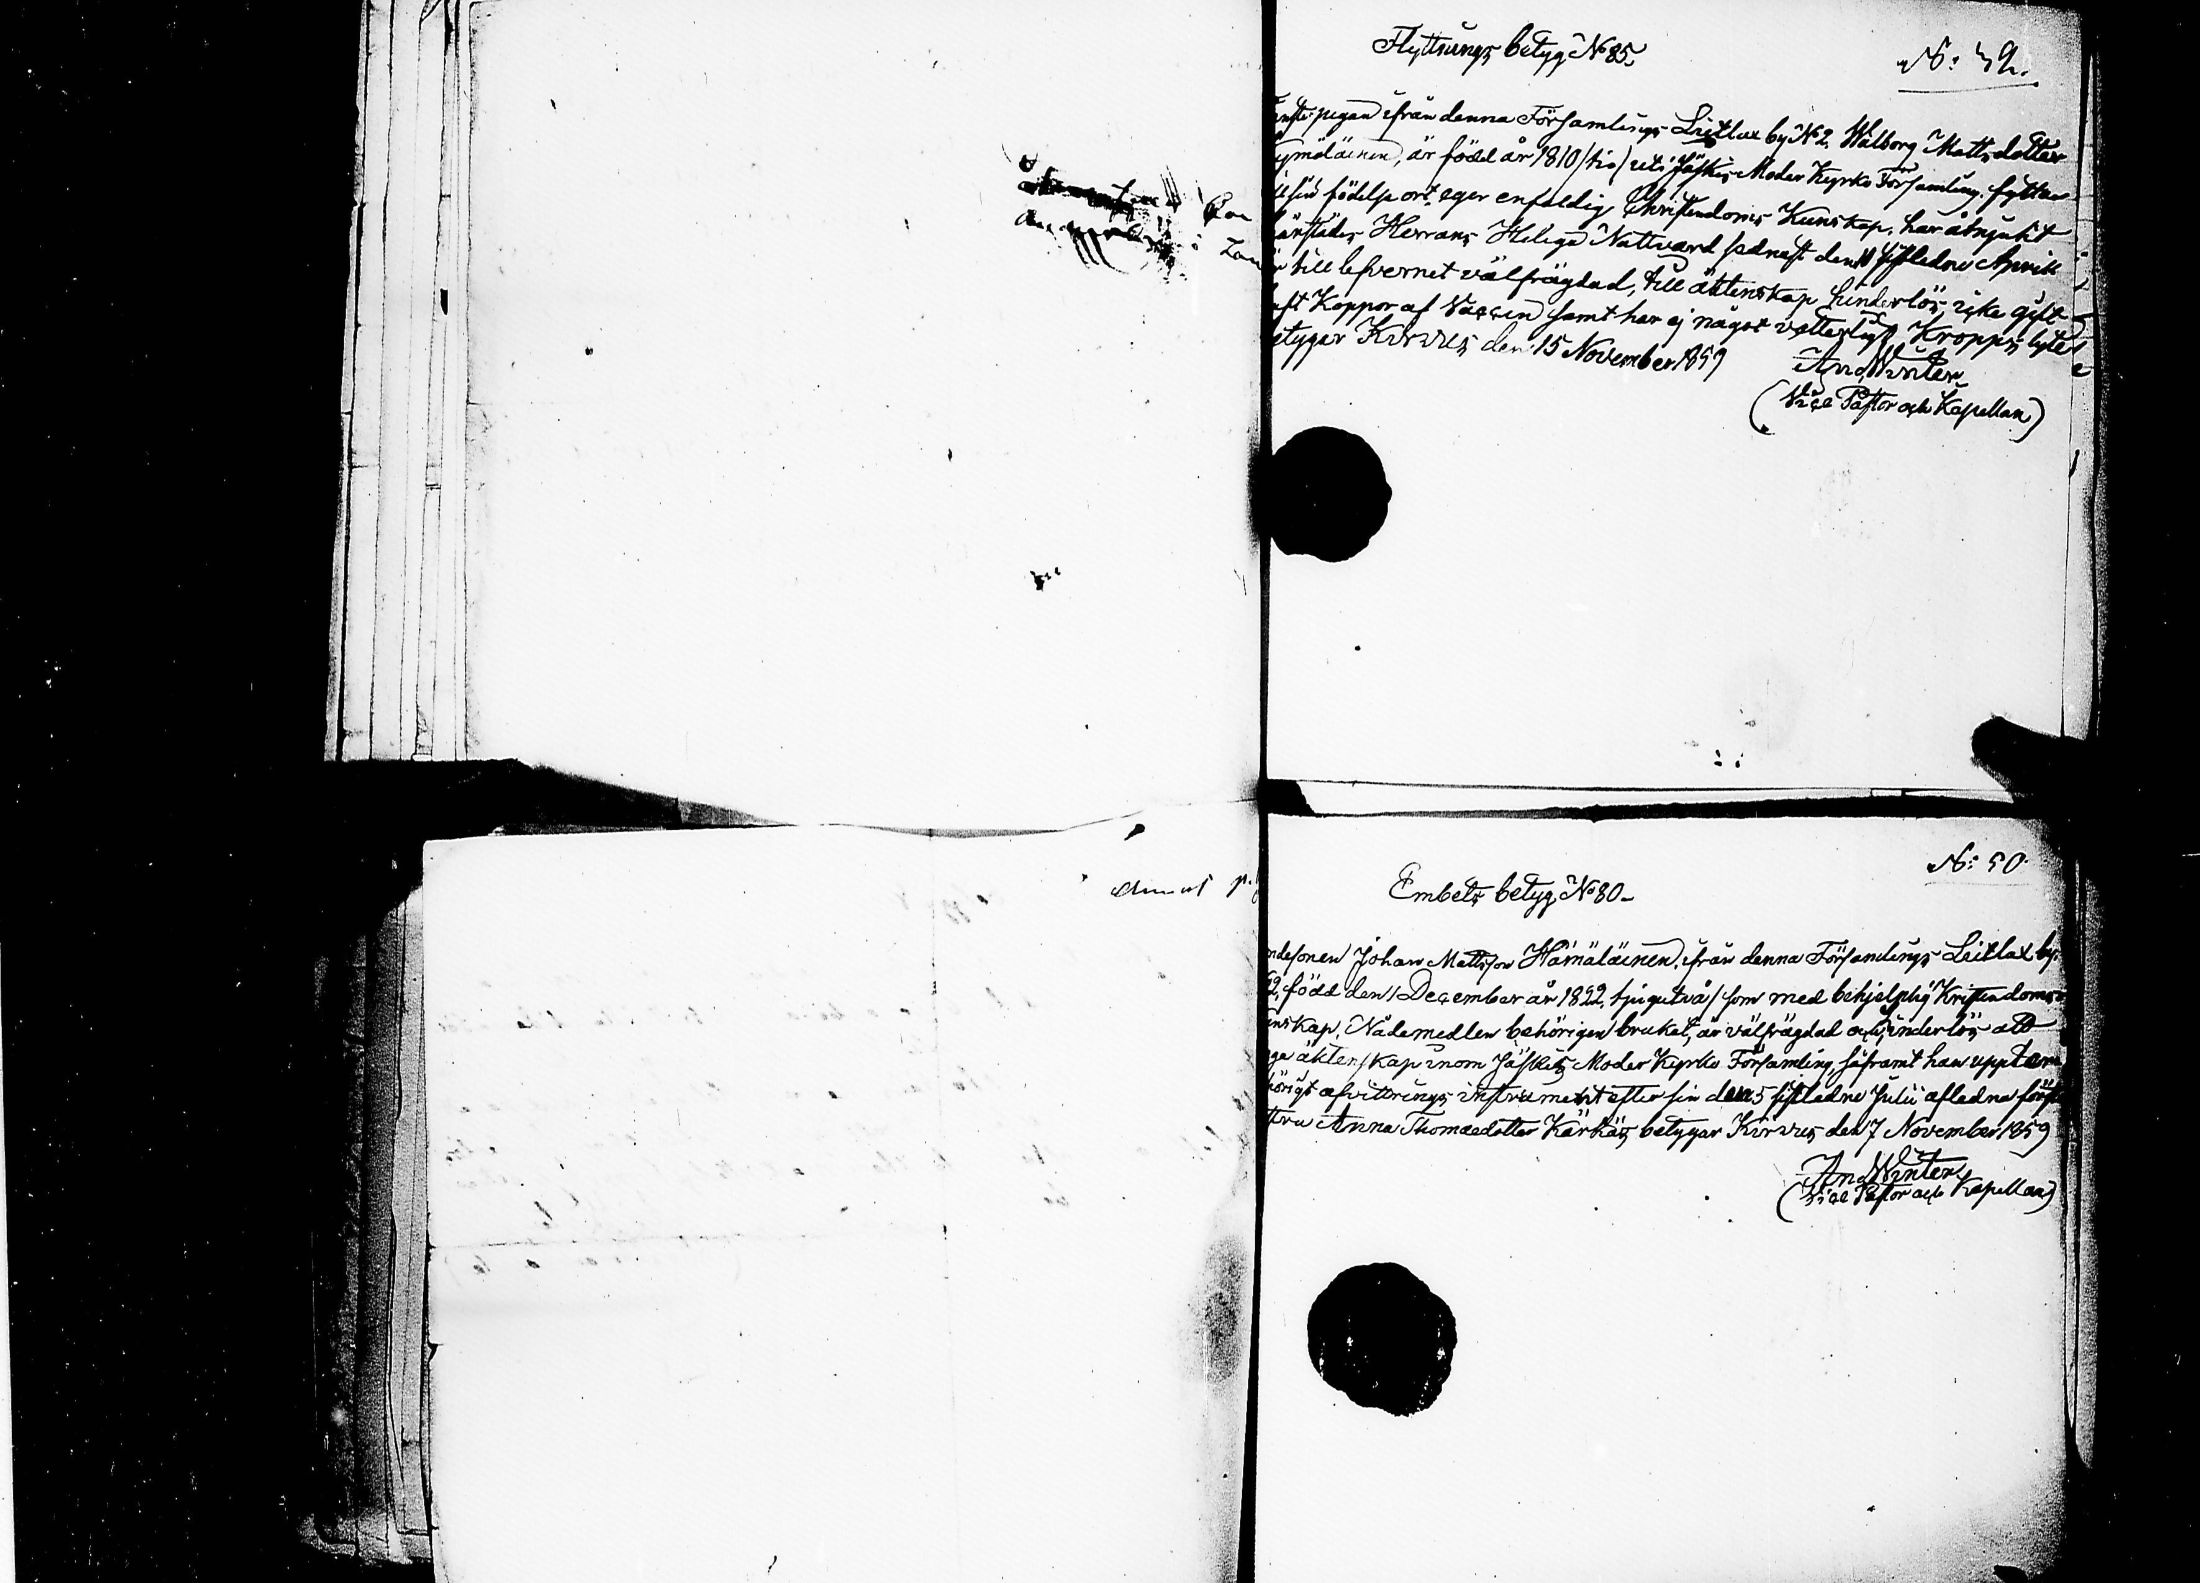 Flyttnings betyg No 85.
No: 59.
pigan ifrån denna Församlings Leitlax by No 2, Walborg Mattsdotter
ymäläinen, är född år 1810/tio/ uti Jäskis Moder Kyrko Församling, flyttar
sin födelse ort, eger enfaldig Christendoms Kunskap, har åtnjutit
härstädes Herrans Heliga Nattvard sednast den sistledne Aprill
till lefvernet välfrägdad, till äktenskap hinderlös, icke gift
aft Koppor af Vaccin samt har ej något vetterligt Kropps lyte
etygar Kirvus den 15 November 1859
And Winter
(Vice Pastor och Kapellan)
No: 50.
Embets betyg No 80.
ndesonen Johan Mattsson Hämäläinen, ifrån denna Församlings Leitlax by
2, född den 1 December år 1822, tjugutvå/ som med behjelplig Kristendoms
unskap, Nådemedlen behörigen brukat, är välfrägdad och hinderlös att
äktenskap inom Jäskis Moder Kyrko Församling, såframt han uppter
hörigt afvittrings instrument efter sin den 5 sistledne Julii afledna första
tru Anna Thomædotter Kärhä, betygar Kirvus den 7 November 1859
And Winter
(Vice Pastor och Kapellan)